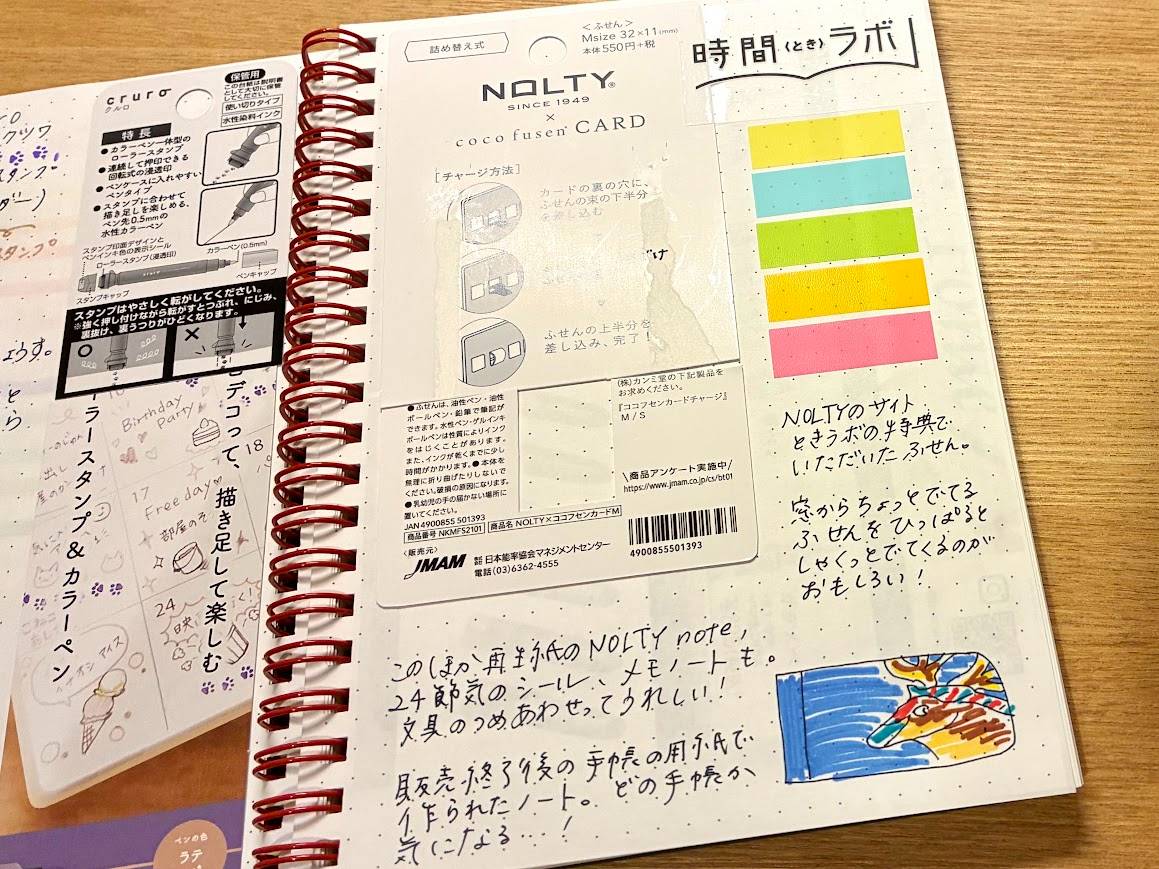 cruro
クルロ
保管用
この台紙は説明書
として大切に保管
してください。
使い切りタイプ
水性染料インク
特長
●カラーペン一体型の
ローラースタンプ
●連続して押印できる
回転式の浸透印
●ペンケースに入れやすい
ペンタイプ
●スタンプに合わせて
描き足しを楽しめる、
ペン先0.5mmの
水性カラーペン
スタンプ印面デザインと
ペンインキ色の表示シール
ローラースタンプ(浸透印)
カラーペン(0.5mm)
ペンキャップ
スタンプキャップ
スタンプはやさしく転がしてください。
※強く押し付けながら転がすとつぶれ、にじみ、
裏抜け、裏うつりがひどくなります。
デコって、描き足して楽しむ
ラースタンプ&カラーペン
Birthday
Party
18
17
Free day
部屋のそ
24
アイス
ペンの色
ラテ
クツワ
スタンプ
ようす。
詰め替え式
<ふせん>
Msize 32×11(mm)
本体550円+税
NOLTY®
SINCE 1949
×
coco fusen CARD
[チャージ方法]
カードの裏の穴に、
ふせんの束の下半分
を差し込む
ふせんの上半分を
差し込み、完了!
●ふせんは、油性ペン・油性
ボールペン・鉛筆で筆記が
できます。水性ペン・ゲルインキ
ボールペンは性質によりインク
をはじくことがあります。
また、インクが乾くまでに少し
時間がかかります。●本体を
無理に折り曲げたりしないで
ください。破損の原因になります。
●乳幼児の手の届かない場所に
置いてください。
JAN4900855 501393
商品番号 NKMF52101 商品名 NOLTY×ココフセンカードM
<販売元>
JMAM 株式会社 日本能率協会マネジメントセンター
電話(03)6362-4555
(株)カンミ堂の下記製品を
お求めください。
『ココフセンカードチャージ』
M / S
\商品アンケート実施中/
https://www.jmam.co.jp/cs/bt01
4900855501393
時間(とき)ラボ
NOLTYのサイト
ときラボの特典で
いただいたふせん。
窓からちょっとでてる
ふせんをひっぱると
しゃくっとでてくるのが
おもしろい!
このほか再生紙のNOLTY note,
24節気のシール、メモノートも。
文具のつめあわせってうれしい!
販売終了後の手帳の用紙で
作られたノート。どの手帳か
気になる…!